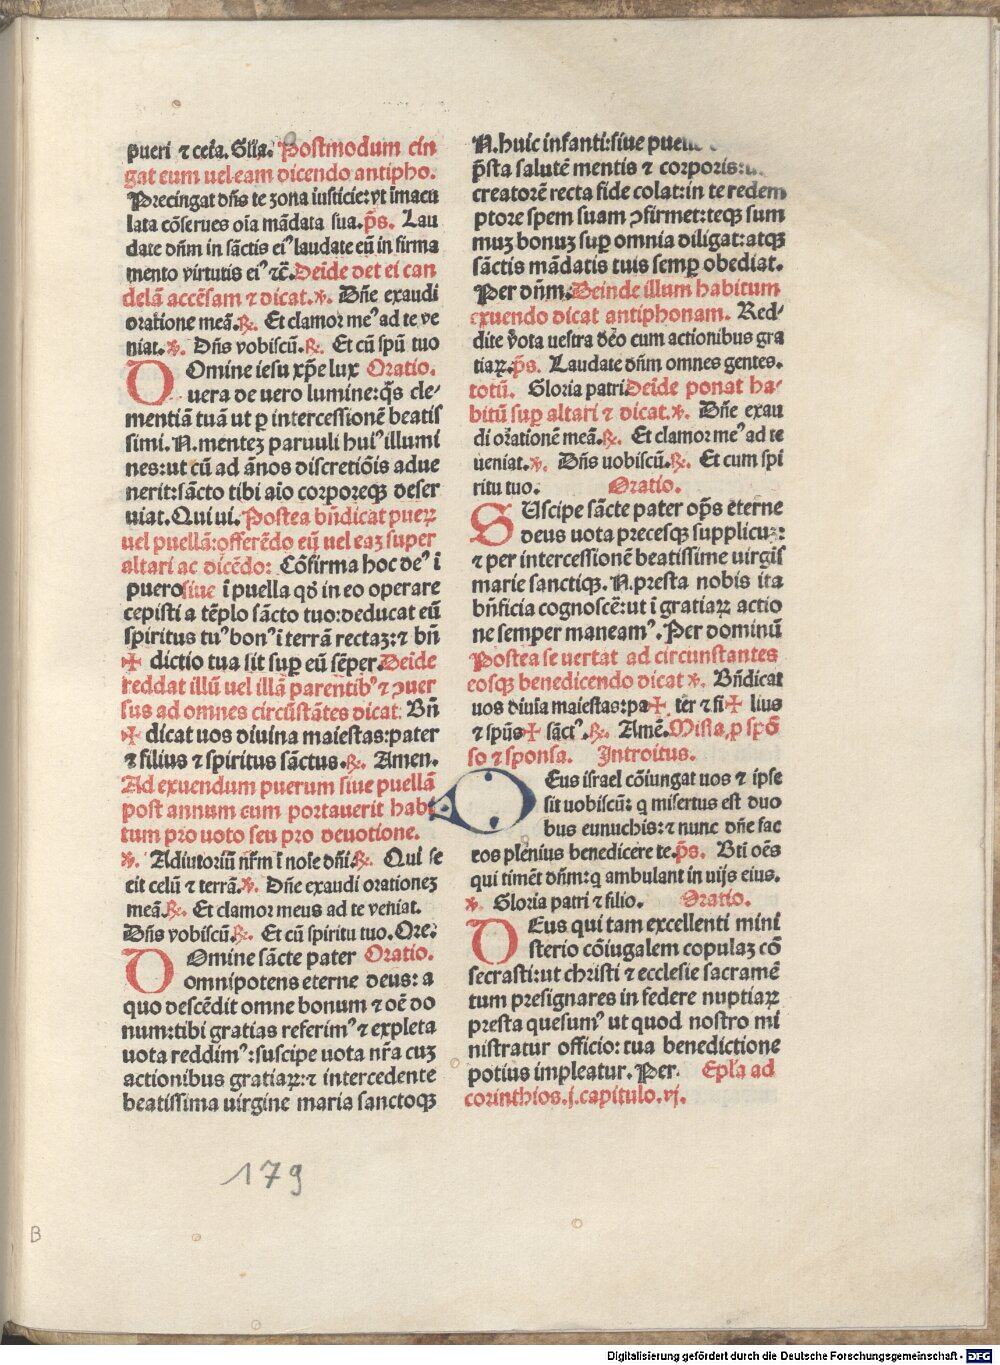 pueri ⁊ cet̃a. Gl̃ia. Postmodum cin
gat eum uel eam dicendo antipho.
Precingat dñs te zona iusticie: vt ĩmacu
lata cõserues oĩa mãdata sua. p̃s. Lau
date dñm in sãctis eiꝰ laudate eũ in firma
mento virtutis eiꝰ ⁊c̃. Deĩde det ei can
delã accẽsam ⁊ dicat. ℣. Dñe exaudi
oratione meã. ℟. Et clamor meꝰ ad te ve
niat. ℣. Dñs vobiscũ. ℟. Et cũ spũ tuo
DOmine iesu xp̃e lux Oratio.
uera de uero lumine: q̃s cle-
mentiã tuã ut ꝑ intercessionẽ beatis
simi. N. mentez paruuli huiꝰ illumi
nes: ut cũ ad ãnos discretiõis adue
nerit: sãcto tibi aĩo corporeqꝫ deser
uiat. Qui ui. Postea bñdicat pueꝝ
uel puellã: offerẽdo eũ uel eaz super
altari ac dicẽdo: Cõfirma hoc deꝰ ĩ
puero siue ĩ puella qď in eo operare
cepisti a tẽplo sãcto tuo: deducat eũ
spiritus tuꝰ bonꝰ ĩ terrã rectaz: ⁊ bñ
✠ dictio tua sit suꝑ eũ sẽper. Deide
reddat illũ uel illã parentibꝰ ⁊ ꝯuer
sus ad omnes circũstãtes dicat. Bñ
✠ dicat uos diuina maiestas: pater
⁊ filius ⁊ spiritus sãctus. ℟. Amen.
Ad exuendum puerum siue puellã
post annum cum portauerit habi
tum pro uoto seu pro deuotione.
℣. Adiutoriũ nr̃m ĩ noĩe dñi. ℟. Qui fe
cit celũ ⁊ terrã. ℣. Dñe exaudi orationez
meã. ℟. Et clamor meus ad te veniat.
Dñs vobiscũ. ℟. Et cũ spiritu tuo. Ore:
DOmine sãcte pater Oratio.
omnipotens eterne deus: a
quo descẽdit omne bonum ⁊ oẽ do
num: tibi gratias referimꝰ ⁊ expleta
uota reddimꝰ: suscipe uota nr̃a cuz
actionibus gratiaꝝ: ⁊ intercedente
beatissima uirgine maria sanctoqꝫ
N. huic infanti: siue
p̃sta salutẽ mentis ⁊ corporis:
creatorẽ recta fide colat: in te redem
ptore spem suam ꝯfirmet: teqꝫ sum
muz bonuz suꝑ omnia diligat: atqꝫ
sãctis mãdatis tuis semꝑ obediat.
Per dñm. Deinde illum habitum
exuendo dicat antiphonam. Red-
dite vota uestra deo cum actionibus gra
tiaꝝ. p̃s. Laudate dñm omnes gentes.
totũ. Gloria patri Deĩde ponat ha-
bitũ suꝑ altari ⁊ dicat. ℣. Dñe exau
di orationẽ meã. ℟. Et clamor meꝰ ad te
ueniat. ℣. Dñs uobiscũ. ℟. Et cum spi
ritu tuo. Oratio.
SUscipe sãcte pater op̃s eterne
deus uota precesqꝫ supplicuz:
⁊ per intercessionẽ beatissime uirgĩs
marie sanctiqꝫ. N. presta nobis ita
bñficia cognoscẽ: ut ĩ gratiaꝝ actio
ne semper maneamꝰ. Per dominũ
Postea se uertat ad circunstantes
eosqꝫ benedicendo dicat ℣. Bñdicat
uos diuĩa maiestas: pa ✠ ter ⁊ fi ✠ lius
⁊ spũs ✠ sãctꝰ. ℟. Amẽ. Missa p̱ spõ
so ⁊ sponsa. Introitus.
DEus israel cõiungat uos ⁊ ipse
sit uobiscũ: q̃ misertus est duo
bus eunuchis: ⁊ nunc dñe fac
eos plenius benedicere te. p̃s. Bti oẽs
qui timẽt dñm: q̃ ambulant in uijs eius.
℣. Gloria patri ⁊ filio. Oratio.
DEus qui tam excellenti mini
sterio cõiugalem copulaz cõ
secrasti: ut christi ⁊ ecclesie sacramẽ
tum presignares in federe nuptiaꝝ
presta quesumꝰ ut quod nostro mi
nistratur officio: tua benedictione
potius impleatur. Per. Epl̃a ad
corinthios. j. capitulo. vj.
179
B
Digitalisierung gefördert durch die Deutsche Forschungsgemeinschaft - DFG